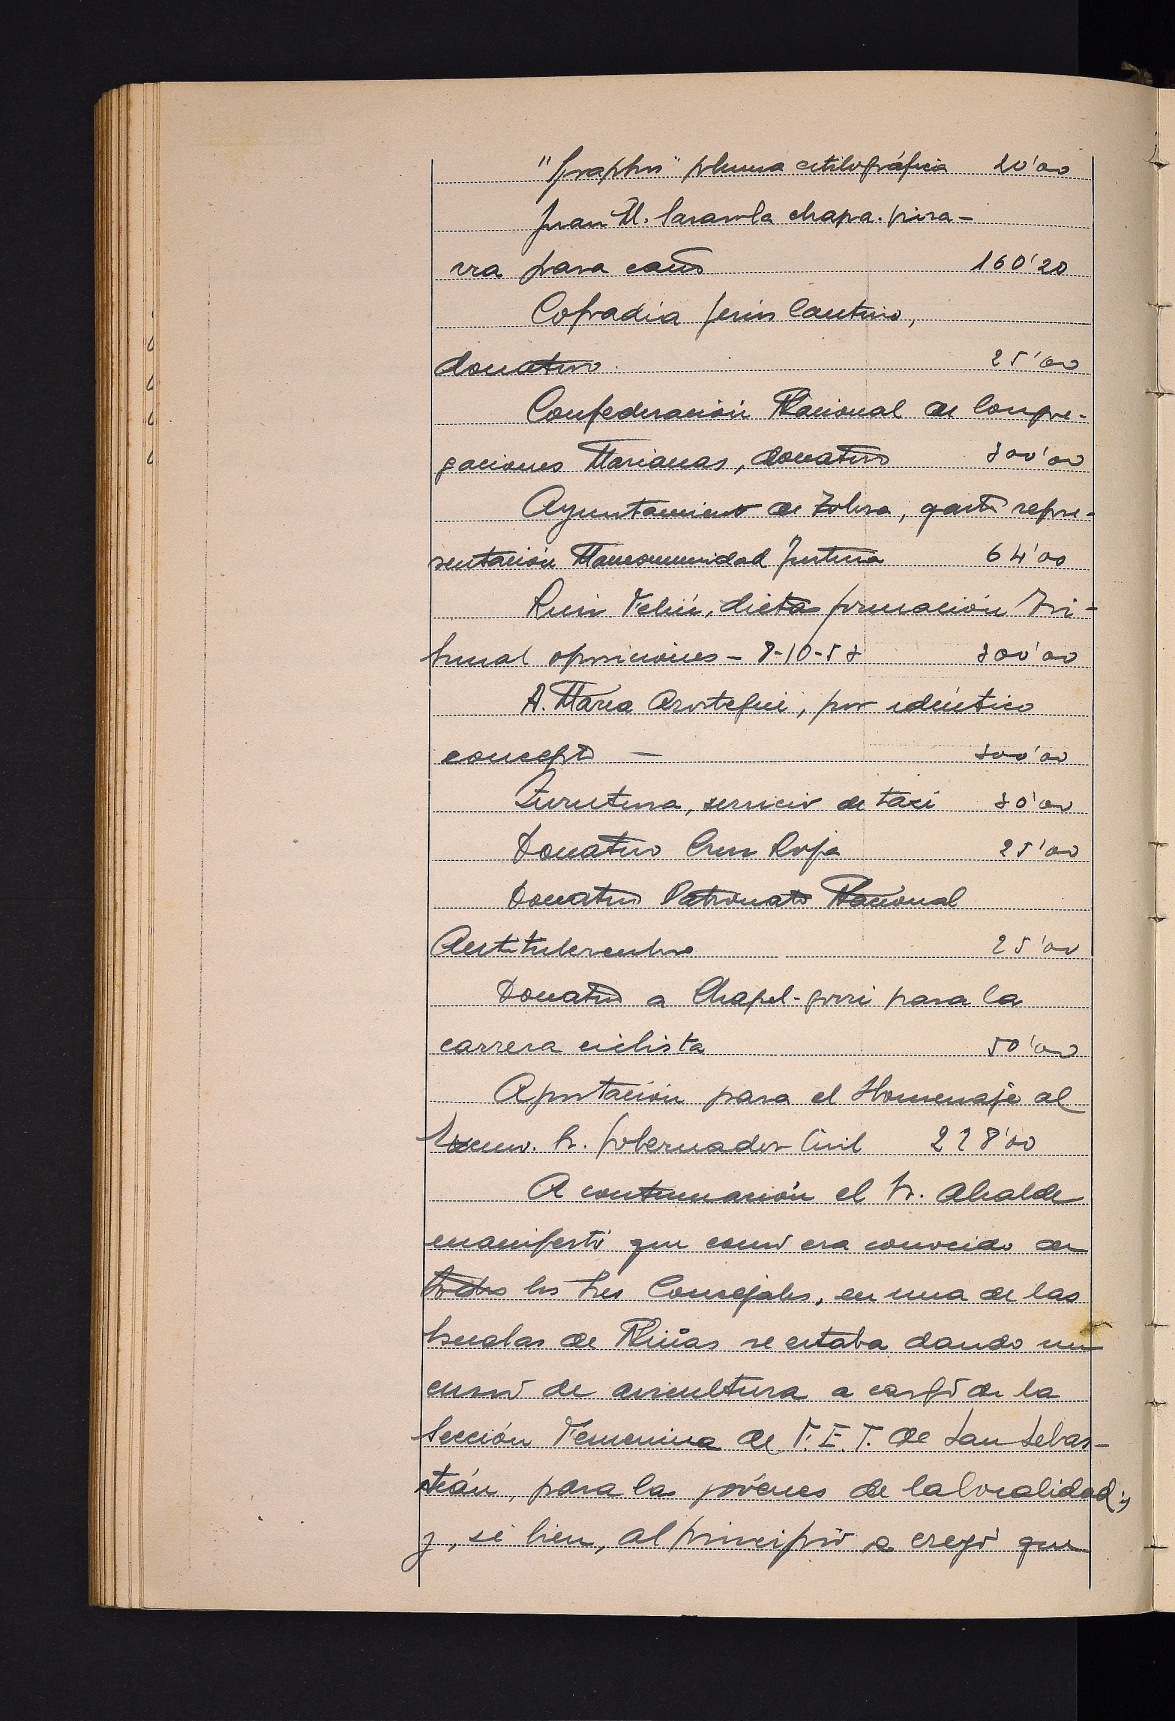 "Graphos" pluma estilográfica 20'00
Juan M. Sarasola chapa-piza-
rra para caño 160'20
Cofradía Jesús Cautivo,
donativo 25'00
Confederación Nacional de Congre-
gaciones Marianas, donativo 300'00
Ayuntamiento de Tolosa, gastos repre-
sentación Mancomunidad Justicia 64'00
Luis Feliú, dietas formación Tri-
bunal oposiciones - 8-10-53 300'00
A. María Arostegui, por idéntico
concepto — 300'00
Zurutuza, servicio de taxi 30'00
Donativo Cruz Roja 25'00
Donativo Patronato Nacional
Antituberculoso 25'00
Donativo a Chapel-gorri para la
carrera ciclista 50'00
Aportación para el Homenaje al
Excmo. Sr. Gobernador Civil 228'00
A continuación el Sr. Alcalde
manifestó que como era conocido de
todos los Sres Concejales, en una de las
Escuelas de Niñas se estaba dando un
curso de avicultura a cargo de la
Sección Femenina de F.E.T. de San Sebas-
tián, para las jóvenes de la localidad;
y, si bien, al principio se creyó que